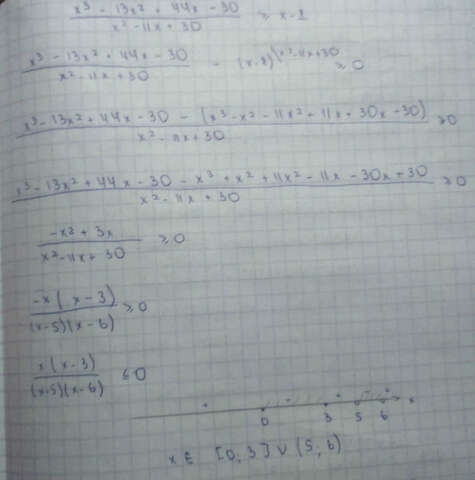 x³ - 13x² + 44x - 30 / x² - 11x + 30 ≥ x - 1
x³ - 13x² + 44x - 30 / x² - 11x + 30 - (x-1)(x²-11x+30 ≥ 0
x³ - 13x² + 44x - 30 - (x³ - x² - 11x² + 11x + 30x - 30) / x² - 11x + 30 ≥ 0
x³ - 13x² + 44x - 30 - x³ + x² + 11x² - 11x - 30x + 30 / x² - 11x + 30 ≥ 0
-x² + 3x / x² - 11x + 30 ≥ 0
-x(x-3) / (x-5)(x-6) ≥ 0
x(x-3) / (x-5)(x-6) ≤ 0
+ - + - + x
0 3 5 6
x ∈ [0, 3] ∪ (5, 6)